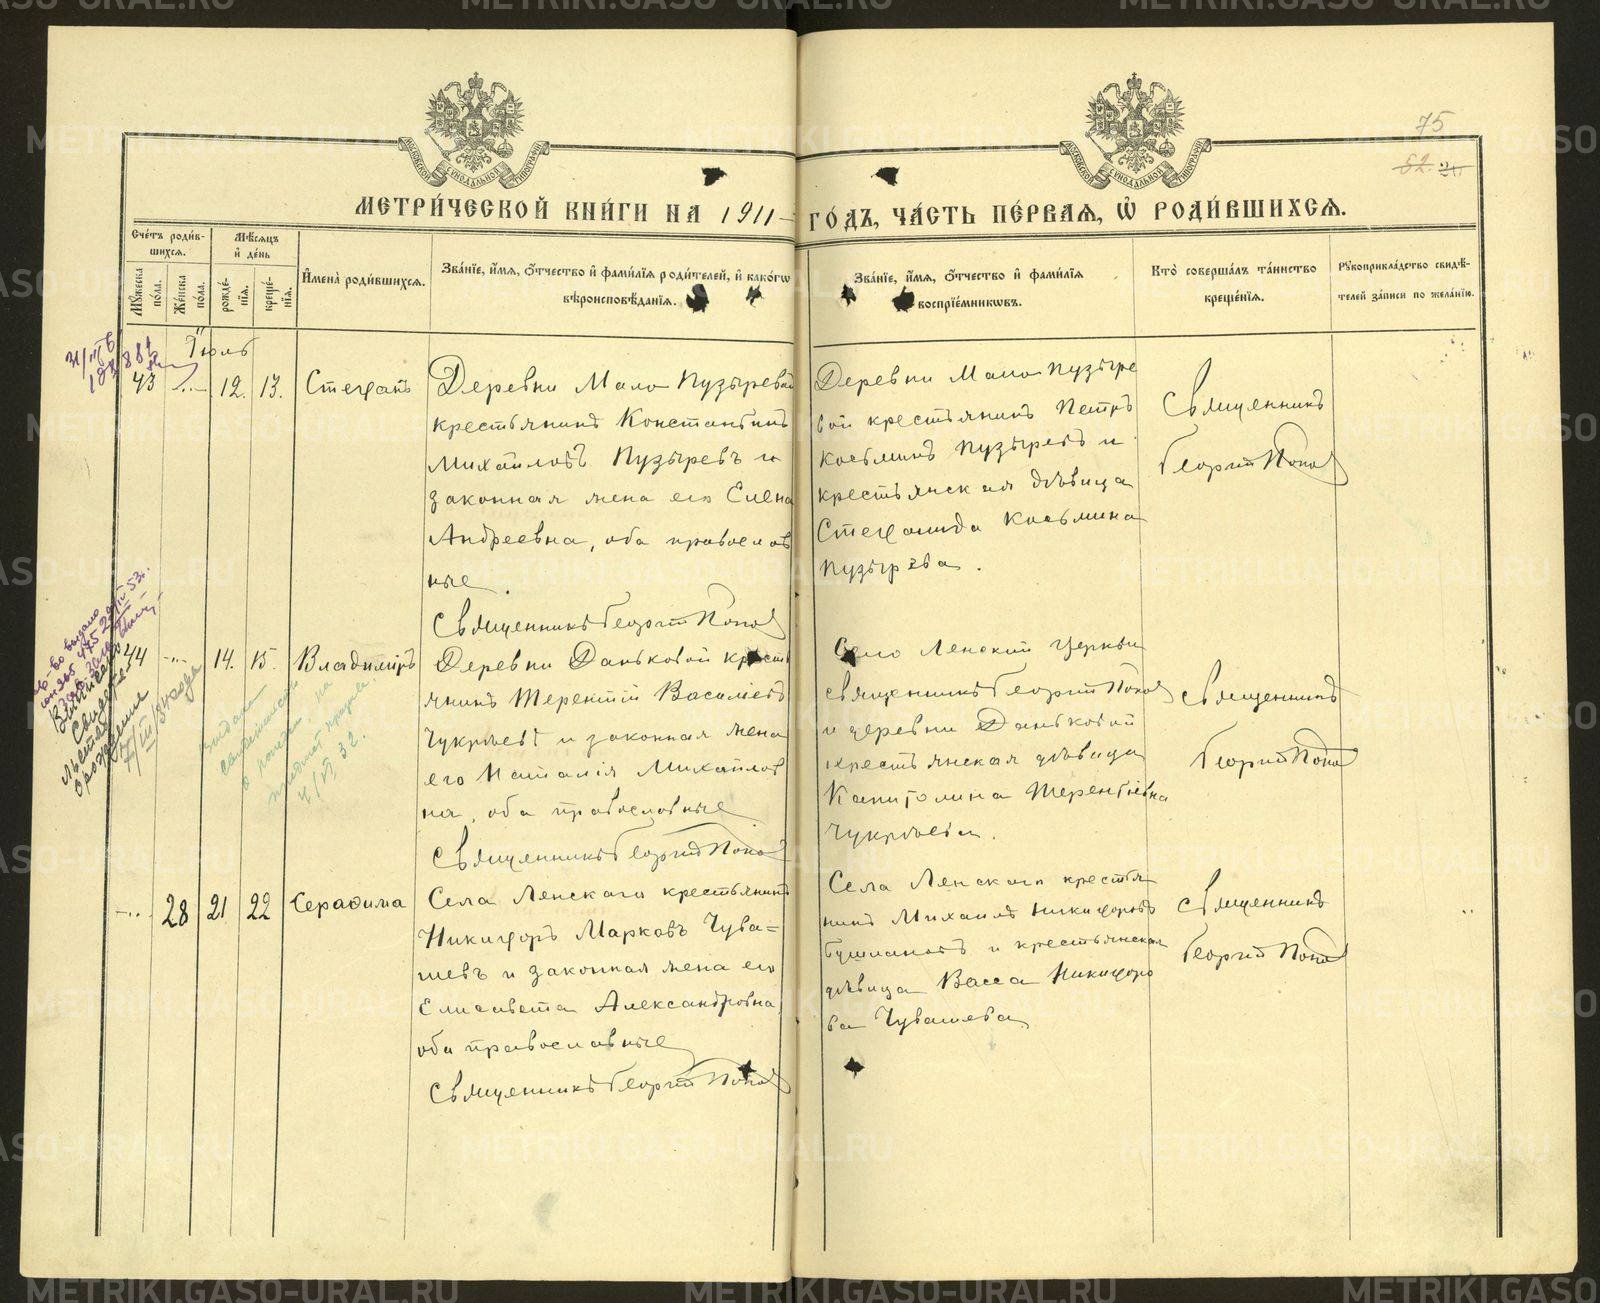 75
МЕТРИ́ЧЕСКОЙ КНИ́ГИ НА 1911 ГО́ДЪ, ЧА́СТЬ ПЕ́РВАЯ, Ѿ РОДИ́ВШИХСЯ.
Сче́тъ роди́в-
шихся.
Мѣ́сяцъ
и҆ де́нь
Мꙋ́жеска
по́ла.
Же́нска
по́ла.
рожде́-
нїѧ.
креще́-
нїѧ.
И҆мена̀ роди́вшихся.
Зва́нїе, и҆́мѧ, ѻ҆́тчество и҆ фами́лїѧ роди́телей, и҆ како́гѡ
вѣроисповѣ́данїѧ.
Зва́нїе, и҆́мѧ, ѻ҆́тчество и҆ фами́лїѧ
воспрїе́мникѡвъ.
Кто̀ соверша́лъ та́инство
креще́нїѧ.
Рꙋкоприкла́дство свидѣ́-
телей за́писи по жела́нїю.
Іюль
43 12. 13. Стефанъ
Деревни Мало Пузыревой
крестьянинъ Константинъ
Михайловъ Пузыревъ и
законная жена его Елена
Андреевна, оба православ
ные
Священникъ Георгій Попов
Деревни Мало Пузыре
вой крестьянинъ Петръ
Косьминъ Пузыревъ и
крестьянская дѣвица
Стефанида Косьмина
Пузырева.
Священникъ
Георгій Попов
44 14. 15. Владиміръ
Деревни Даньковой кресть
янинъ Терентій Васильевъ
Чукреевъ и законная жена
его Наталія Михайлов
на, оба православные
Священникъ Георгій Попов
Село Ленской церкви
священникъ Георгій Попов
и деревни Даньковой
крестьянская дѣвица
Капитолина Терентіевна
Чукреева.
Священникъ
Георгій Попов
28 21 22 Серафима
Села Ленскаго крестьянинъ
Никифоръ Марковъ Чува=
шевъ и законная жена его
Елисавета Александровна,
оба православные
Священникъ Георгій Попов
Села Ленскаго крестья
нинъ Михаилъ Никифоровъ
и крестьянская
дѣвица Васса Никифоро
ва Чувашева
Священникъ
Георгій Попов
METRIKI.GASO-URAL.RU